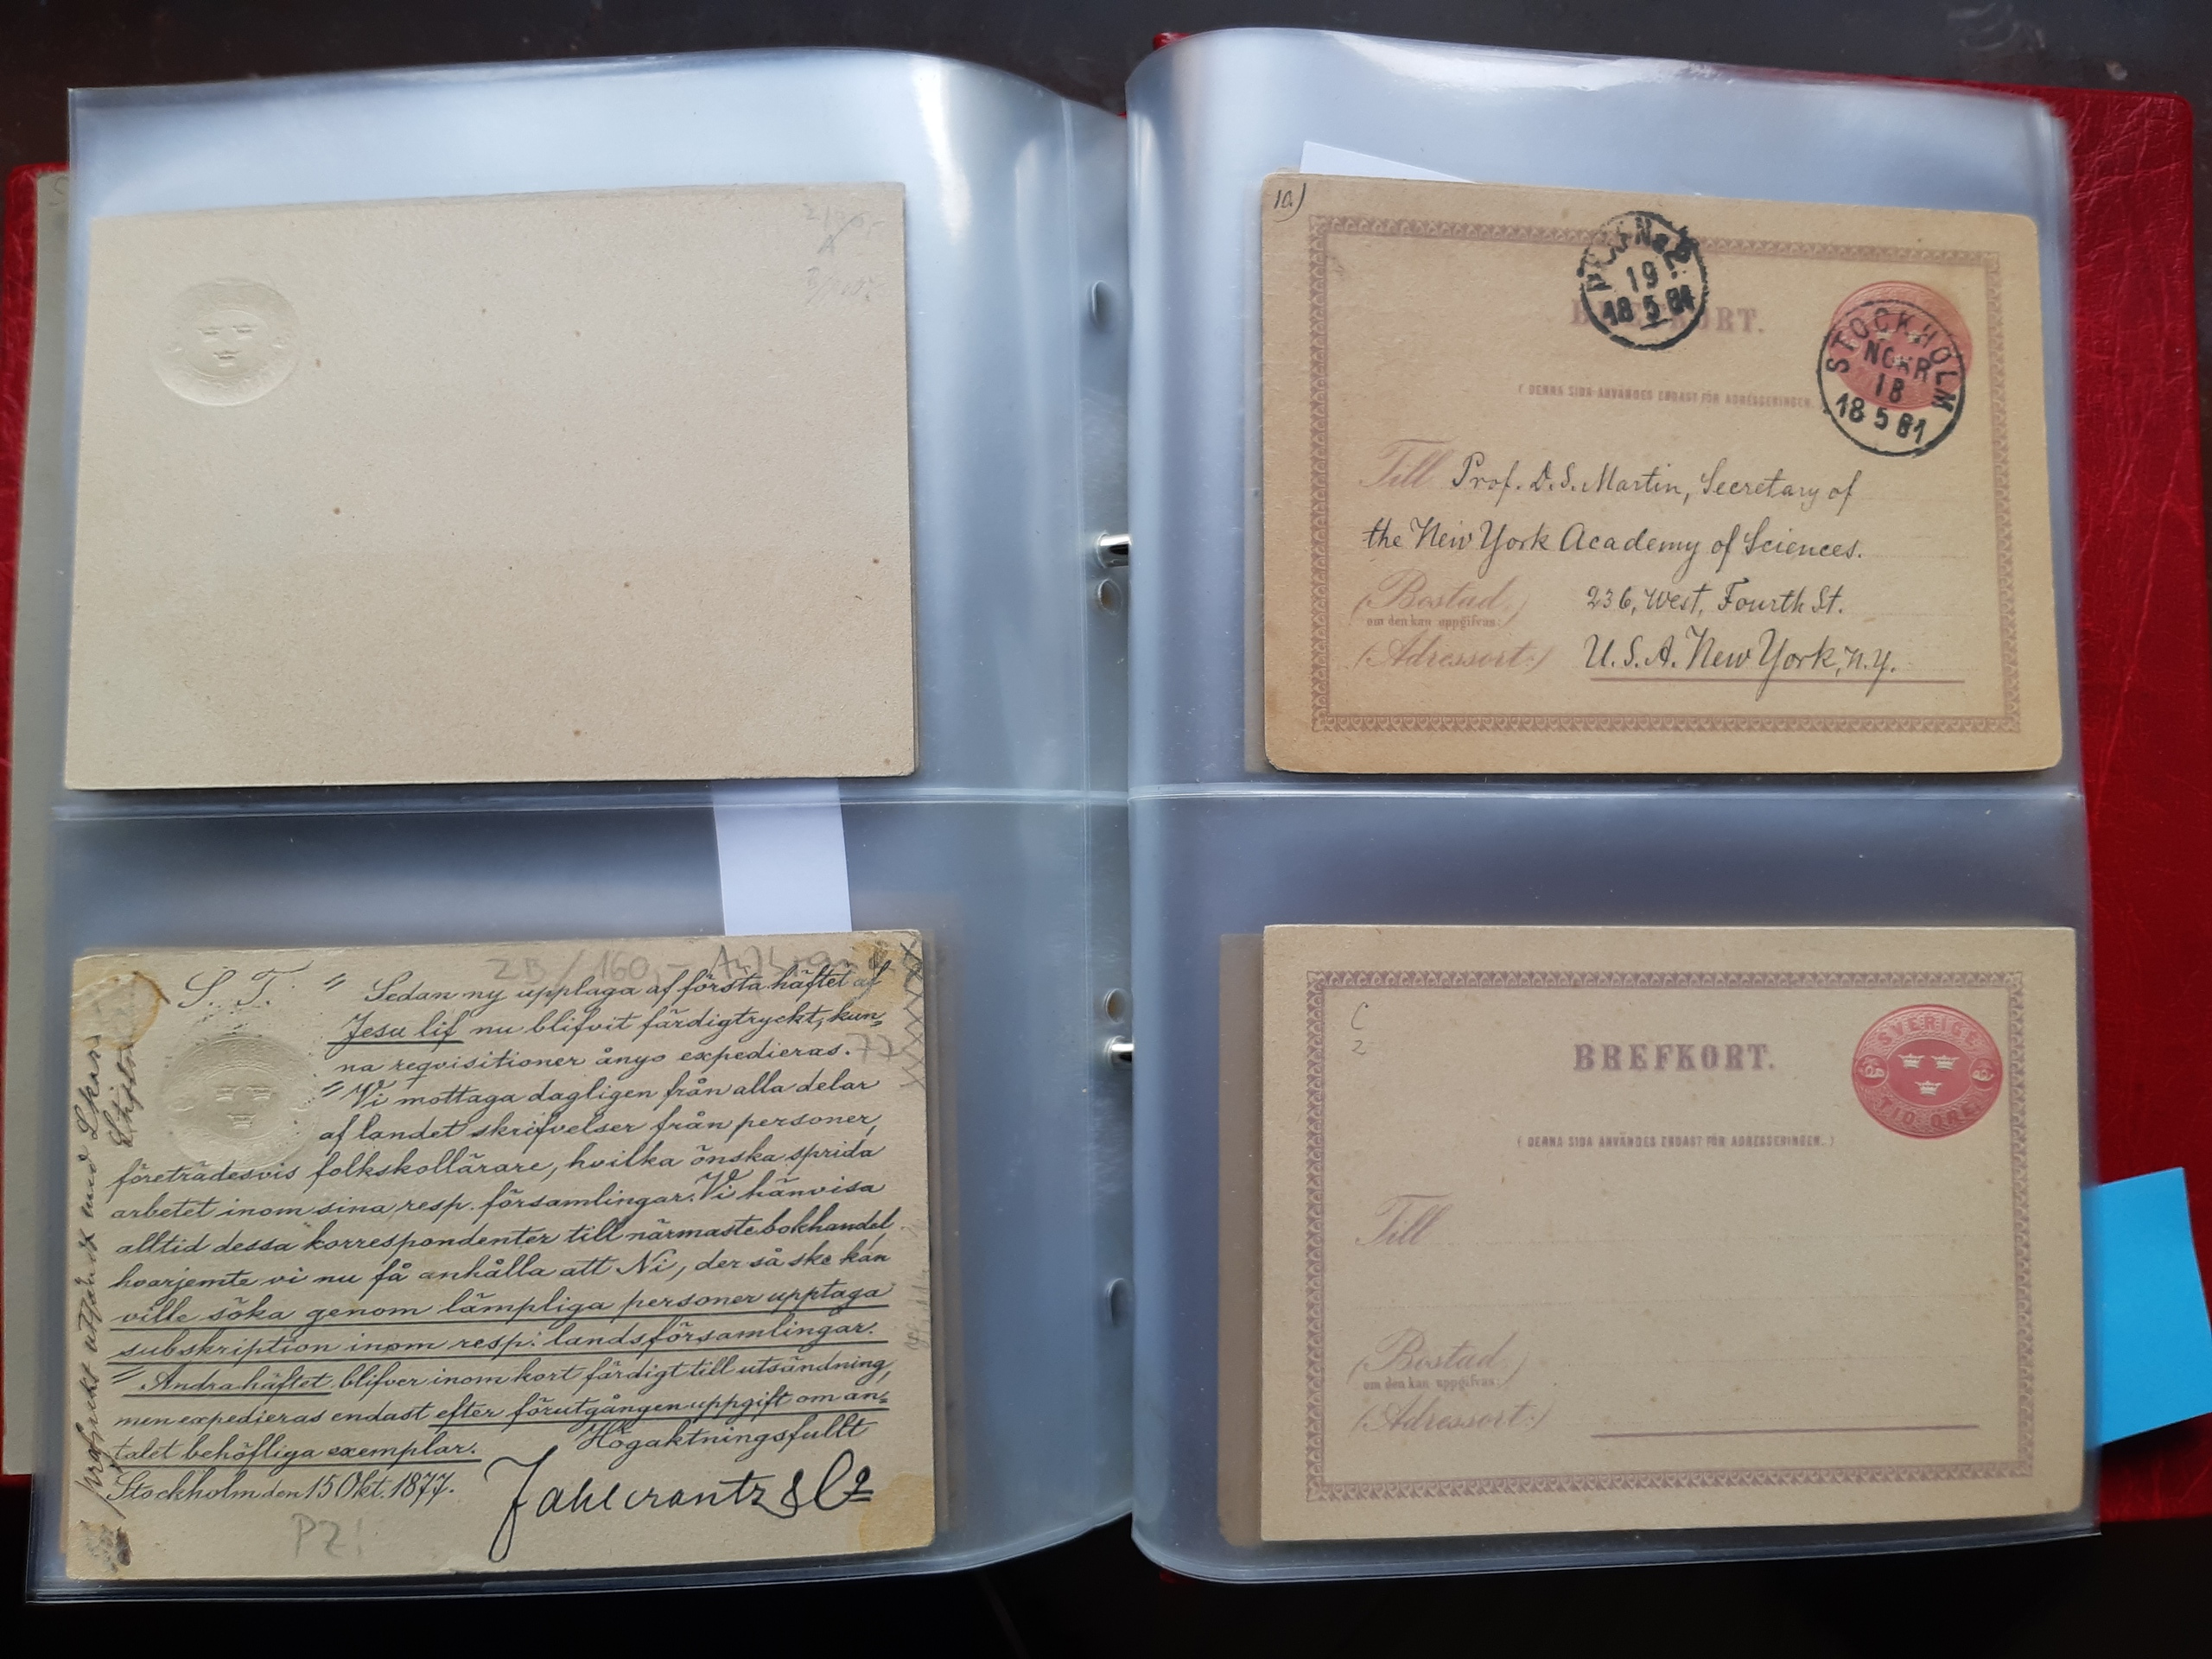 S. T.
" Sedan ny upplaga af första häftet af
Jesu lif nu blifvit färdigtryckt, kun=
na reqvisitioner ånyo expedieras.
77
" Vi mottaga dagligen från alla delar
af landet skrifvelser från personer,
företrädesvis folkskollärare, hvilka önska sprida
arbetet inom sina resp. församlingar. Vi hänvisa
alltid dessa korrespondenter till närmaste bokhandel,
hvarjemte vi nu få anhålla att Ni, der så ske kan
ville söka genom lämpliga personer upptaga
subskription inom resp: landsförsamlingar.
" Andra häftet blifver inom kort färdigt till utsändning,
men expedieras endast efter förutgången uppgift om an=
talet behöfliga exemplar.
Högaktningsfullt
Stockholm den 15 Okt. 1877.
Fahlcrantz & Co
PZ!
ZB/160,-
10)
19
18 5 81
BREFKORT.
STOCKHOLM
NORR
18
18 5 81
( DENNA SIDA ANVÄNDES ENDAST FÖR ADRESSERINGEN.
Till Prof. D. S. Martin, Secretary of
the New York Academy of Sciences.
(Bostad) 236, West, Fourth St.
om den kan uppgifvas:
(Adressort:) U. S. A. New York, N. Y.
C
2
BREFKORT.
SVERIGE
TIO ÖRE
( DENNA SIDA ANVÄNDES ENDAST FÖR ADRESSERINGEN. )
Till
(Bostad)
om den kan uppgifvas:
(Adressort:)